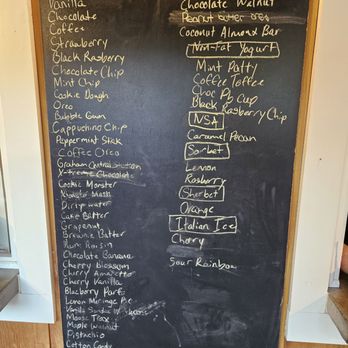 Vanilla
Chocolate
Coffee
Strawberry
Black Raspberry
Chocolate Chip
Mint Chip
Cookie Dough
Oreo
Bubble Gum
Cappuccino Chip
Peppermint Stick
Coffee Oreo
Graham Central Station
X-treme Chocolate
Cookie Monster
Monster Mash
Dirty water
Cake Batter
Grapenut
Brownie Batter
Rum Raisin
Chocolate Banana
Cherry Blossom
Cherry Amaretto
Cherry Vanilla
Blueberry
Lemon Meringue Pie
Vanilla
Moose Trax
Maple Walnut
Pistachio
Cotton Candy
Chocolate Walnut
Peanut butter oreo
Coconut Almond Bar
Non-Fat Yogurt
Mint Patty
Coffee Toffee
Choc Pb Cup
Black Raspberry Chip
NSA
Caramel Pecan
Sorbet
Lemon
Raspberry
Sherbet
Orange
Italian Ice
Cherry
Sour Rainbow